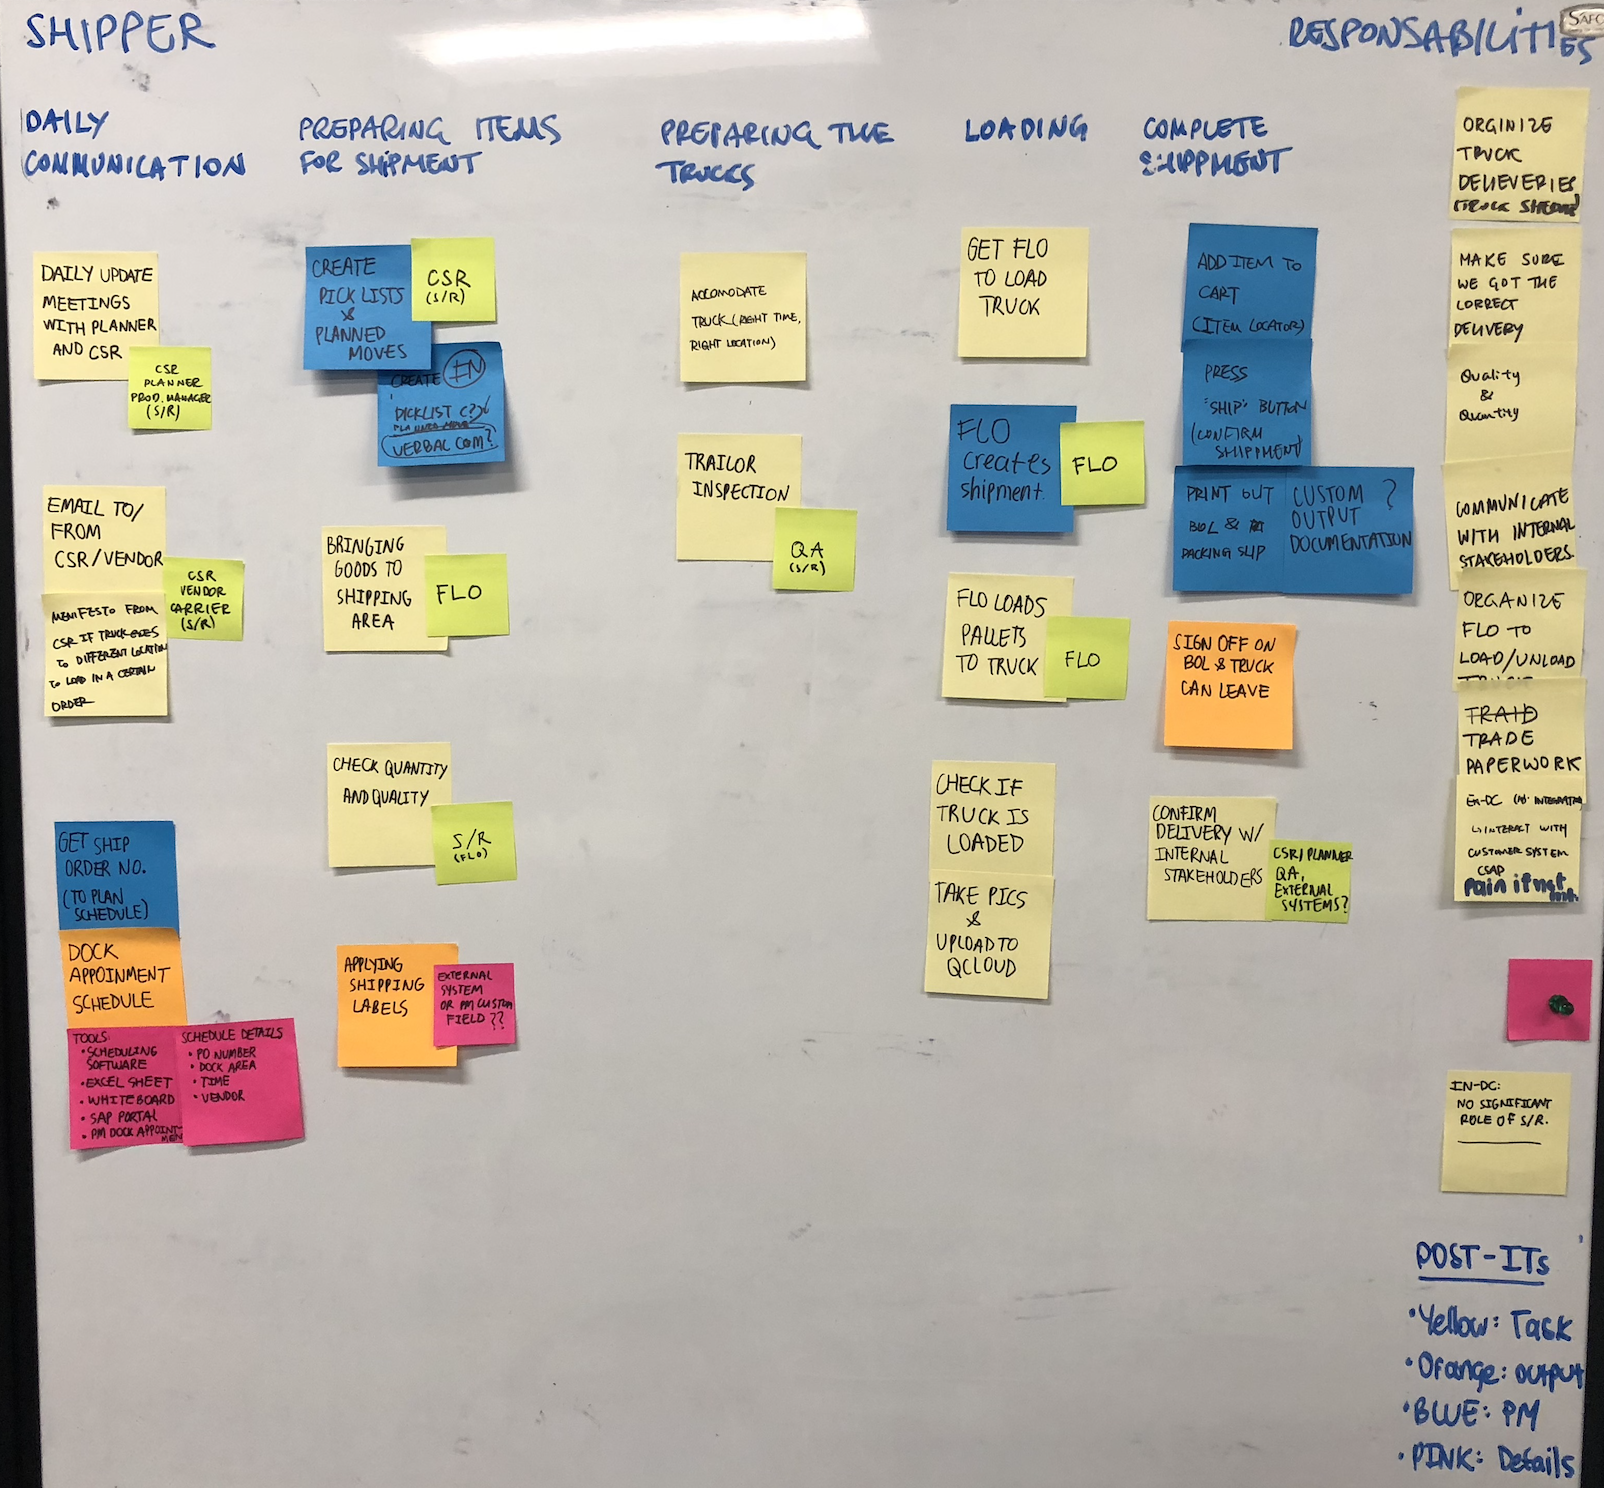 SHIPPER
RESPONSABILITIES
SAFCO
DAILY
COMMUNICATION
DAILY UPDATE
MEETINGS
WITH PLANNER
AND CSR
CSR
PLANNER
PROD. MANAGER
(S/R)
EMAIL TO/
FROM
CSR/VENDOR
CSR
VENDOR
CARRIER
(S/R)
MENIFESTO FROM
CSR IF TRUCK GOES
TO DIFFERENT LOCATION
TO LOAD IN A CERTAIN
ORDER
GET SHIP
ORDER NO.
(TO PLAN
SCHEDULE)
DOCK
APPOINMENT
SCHEDULE
TOOLS:
• SCHEDULING
SOFTWARE
• EXCEL SHEET
• WHITEBOARD
• SAP PORTAL
• PM DOCK APPOINT-
MENT
SCHEDULE DETAILS
• PO NUMBER
• DOCK AREA
• TIME
• VENDOR
PREPARING ITEMS
FOR SHIPMENT
CREATE
PICK LISTS
&
PLANNED
MOVES
CSR
(S/R)
CREATE IN
PICKLIST
PLANNED MOVE
VERBAL COM?
BRINGING
GOODS TO
SHIPPING
AREA
FLO
CHECK QUANTITY
AND QUALITY
S/R
(FLO)
APPLYING
SHIPPING
LABELS
EXTERNAL
SYSTEM
OR PM CUSTOM
FIELD ??
PREPARING THE
TRUCKS
ACCOMODATE
TRUCK (RIGHT TIME,
RIGHT LOCATION)
TRAILOR
INSPECTION
QA
(S/R)
LOADING
GET FLO
TO LOAD
TRUCK
FLO
creates
shipment.
FLO
FLO LOADS
PALLETS
TO TRUCK
FLO
CHECK IF
TRUCK IS
LOADED
TAKE PICS
&
UPLOAD TO
QCLOUD
COMPLETE
SHIPPMENT
ADD ITEM TO
CART
(ITEM LOCATOR)
PRESS
"SHIP" BUTTON
(CONFIRM
SHIPPMENT)
PRINT OUT
BOL &
PACKING SLIP
CUSTOM ?
OUTPUT
DOCUMENTATION
SIGN OFF ON
BOL & TRUCK
CAN LEAVE
CONFIRM
DELIVERY W/
INTERNAL
STAKEHOLDERS
CSR/PLANNER
QA,
EXTERNAL
SYSTEMS?
ORGINIZE
TRUCK
DELIEVERIES
(TRUCK SHEDULE)
MAKE SURE
WE GOT THE
CORRECT
DELIVERY
Quality
&
Quantity
COMMUNICATE
WITH INTERNAL
STAKEHOLDERS.
ORGANIZE
FLO TO
LOAD/UNLOAD
TRAID
TRADE
PAPERWORK
EX-DC
INTERACT WITH
CUSTOMER SYSTEM
CSAP
pain if not
IN-DC:
NO SIGNIFICANT
ROLE OF S/R.
POST-ITs
• Yellow: Task
• Orange: output
• BLUE: PM
• PINK: Details